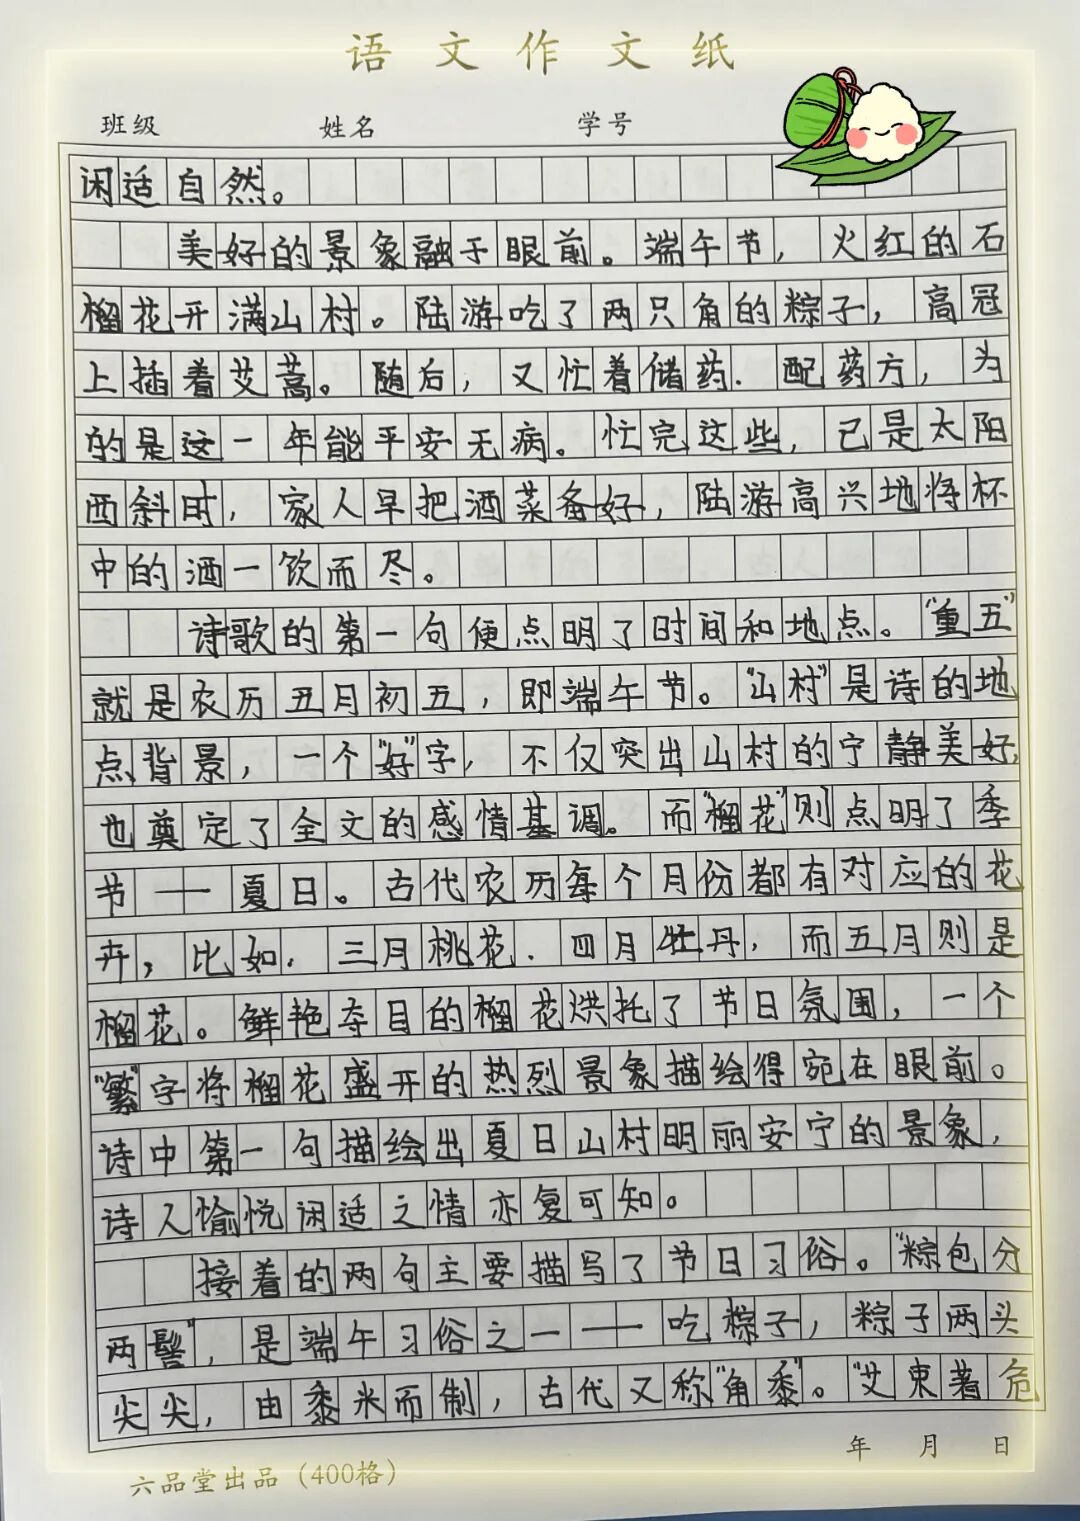 语文作文纸
班级 姓名 学号
闲适自然。
美好的景象融于眼前。端午节，火红的石
榴花开满山村。陆游吃了两只角的粽子，高冠
上插着艾蒿。随后，又忙着储药．配药方，为
的是这一年能平安无病。忙完这些，已是太阳
西斜时，家人早把酒菜备好，陆游高兴地将杯
中的酒一饮而尽。
诗歌的第一句便点明了时间和地点。“重五”
就是农历五月初五，即端午节。“山村”是诗的地
点背景，一个“好”字，不仅突出山村的宁静美好，
也奠定了全文的感情基调。而“榴花”则点明了季
节——夏日。古代农历每个月份都有对应的花
卉，比如．三月桃花．四月牡丹，而五月则是
榴花。鲜艳夺目的榴花烘托了节日氛围，一个
“繁”字将榴花盛开的热烈景象描绘得宛在眼前。
诗中第一句描绘出夏日山村明丽安宁的景象，
诗人愉悦闲适之情亦复可知。
接着的两句主要描写了节日习俗。“粽包分
两髻”，是端午习俗之一——吃粽子，粽子两头
尖尖，由黍米而制，古代又称“角黍”。“艾束著危
年 月 日
六品堂出品（400格）